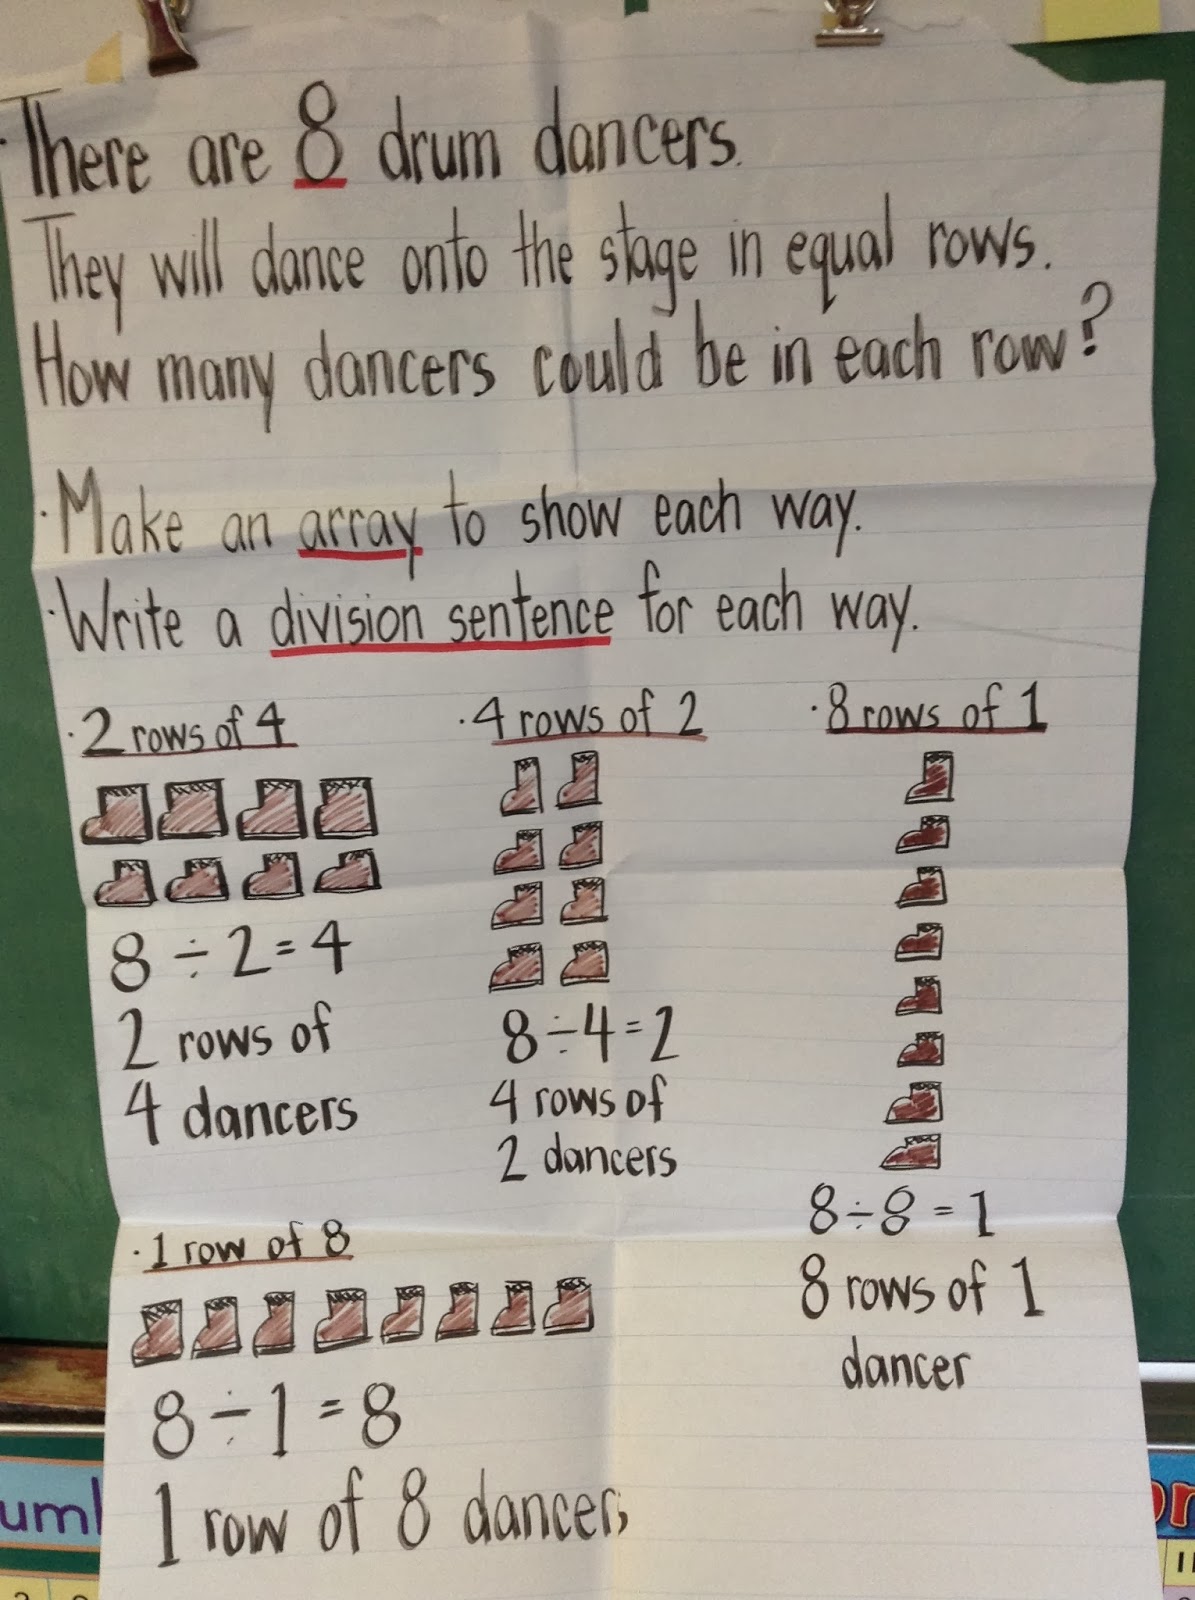 ·There are 8 drum dancers.
They will dance onto the stage in equal rows.
How many dancers could be in each row?
·Make an array to show each way.
·Write a division sentence for each way.
·2 rows of 4
8 ÷ 2 = 4
2 rows of
4 dancers
·4 rows of 2
8 ÷ 4 = 2
4 rows of
2 dancers
·8 rows of 1
8 ÷ 8 = 1
8 rows of 1
dancer
·1 row of 8
8 ÷ 1 = 8
1 row of 8 dancers